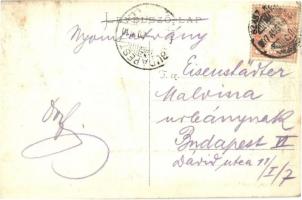 LEVELEZŐ-LAP
Nyomtatvány
BUDAPEST
T. c.
Eisenstädter
Malvina
urleánynak
Budapest VI
Dávid utca 11
I/7